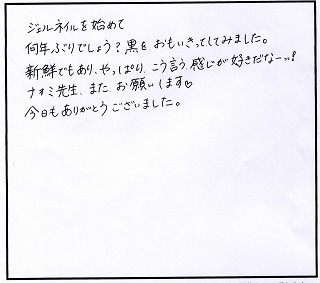 ジェルネイルを始めて
何年ぶりでしょう?黒を おもいきってしてみました。
新鮮でもあり、やっぱり、こう言う感じが好きだなーッ!
ナオミ先生、また、お願いします♡
今日もありがとうございました。